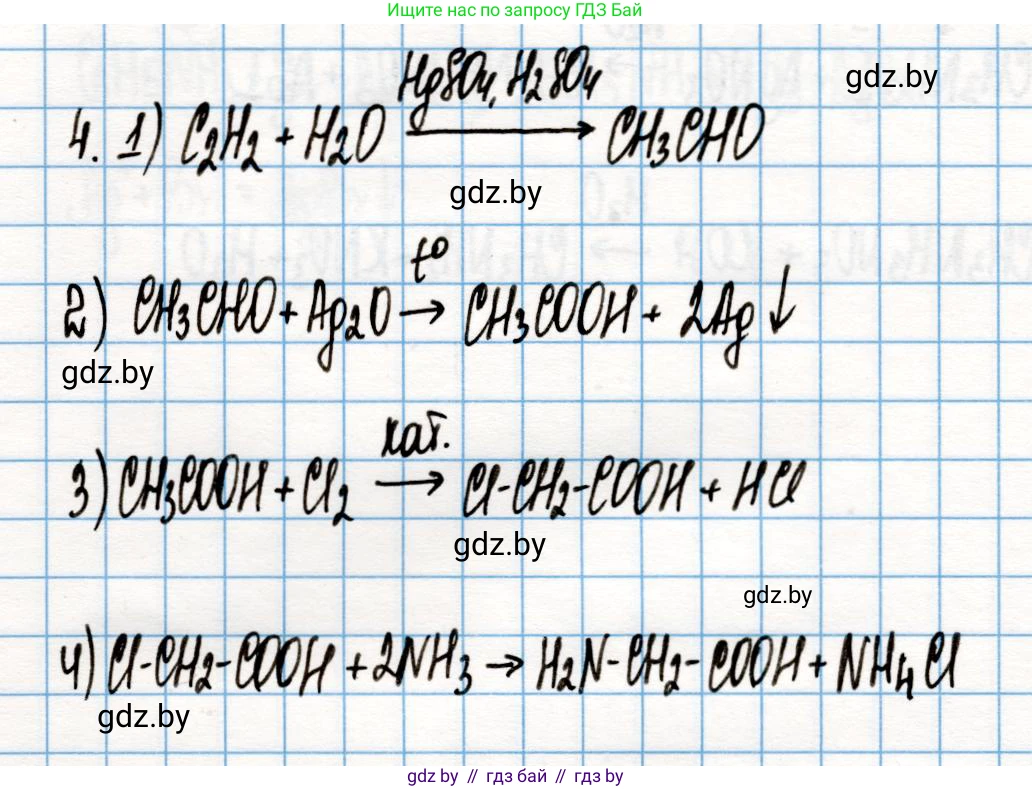 Ищите нас по запросу ГДЗ Бай
HgSO4, H2SO4
gdz.by
4. 1) C2H2 + H2O → CH3CHO
gdz.by
t°
2) CH3CHO + Ag2O → CH3COOH + 2Ag ↓
gdz.by
кат.
3) CH3COOH + Cl2 → Cl-CH2-COOH + HCl
gdz.by
gdz.by
4) Cl-CH2-COOH + 2NH3 → H2N-CH2-COOH + NH4Cl
gdz.by
gdz by // гдз бай // гдз by